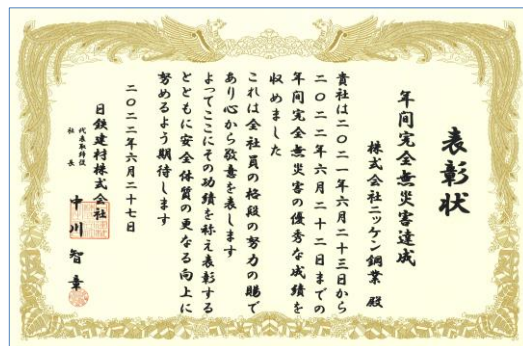 表彰状
年間完全無災害達成
株式会社ニッケン鋼業 殿
貴社は二〇二一年六月二十三日から
二〇二二年六月二十二日までの
年間完全無災害の優秀な成績を
収めました
これは全社員の格段の努力の賜で
あり心から敬意を表します
よってここにその功績を称え表彰する
とともに安全体質の更なる向上に
努めるよう期待します
二〇二二年六月二十七日
日鉄建材株式会社
代表取締役
社長
中川智章